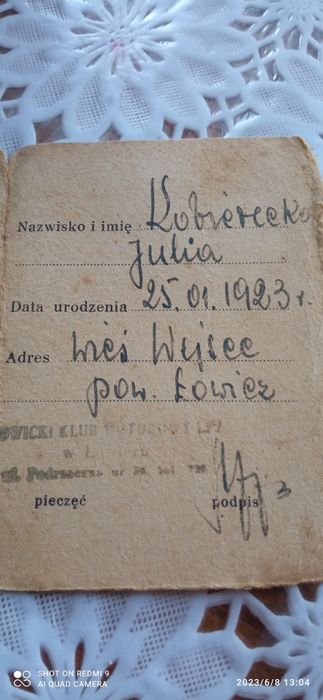 Nazwisko i imię Kobierecka
Julia
Data urodzenia 25.01.1923 r.
Adres wieś Wejsce
pow. Łowicz
OWICKI KLUB MOTOROWY LPŻ
w
ul. Podrzeczna nr
pieczęć podpis
SHOT ON REDMI 9
AI QUAD CAMERA
2023/6/8 13:04